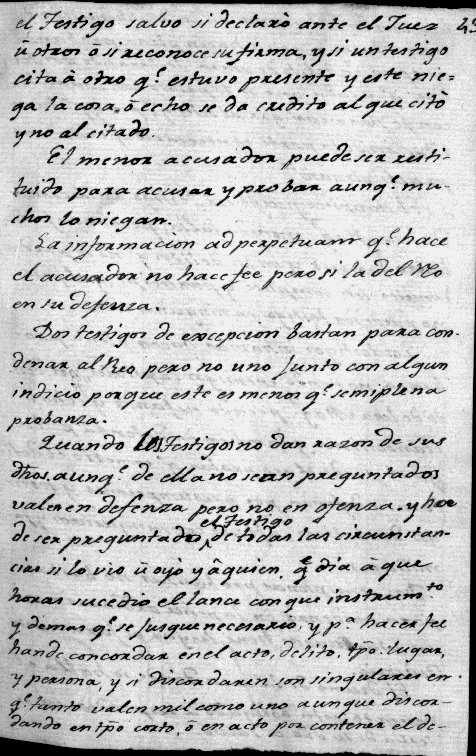 el Testigo salvo si declarò ante el Juez
ù otros ò si reconoce su firma, y si un testigo
cita à otro q.ᵉ estuvo presente y este nie=
ga la cosa, ò echo se da credito al que citò
y no al citado.
El menor acusador puede ser resti-
tuido para acusar y probar aunq.ᵉ mu-
chos lo niegan.
La informacion ad perpetuam q.ᵉ hace
el acusador no hace fee pero si la del Reo
en su defenza.
Dos testigos de excepcion bastan para con-
denar al Reo pero no uno junto con algun
indicio porque este es menor q.ᵉ semiplena
probanza.
Quando los Testigos no dan razon de sus
dhos. aunq.ᵉ de ella no sean preguntados
valen en defenza pero no en ofenza. y ha
el Testigo
de ser preguntado de todas las circunstan-
cias si lo vio ù oyò y à quien, q.ᵉ dia à que
horas sucediò el lance con que instrum.ᵗᵒ
y demas q.ᵉ se jusgue necesario, y p.ᵃ hacer fee
han de concordar en el acto, delito, tpõ. lugar,
y persona, y si discordaren son singulares en
q.ᵉ tanto valen mil como uno aunque discor-
dando en tpõ corto, ò en acto por contener el de-